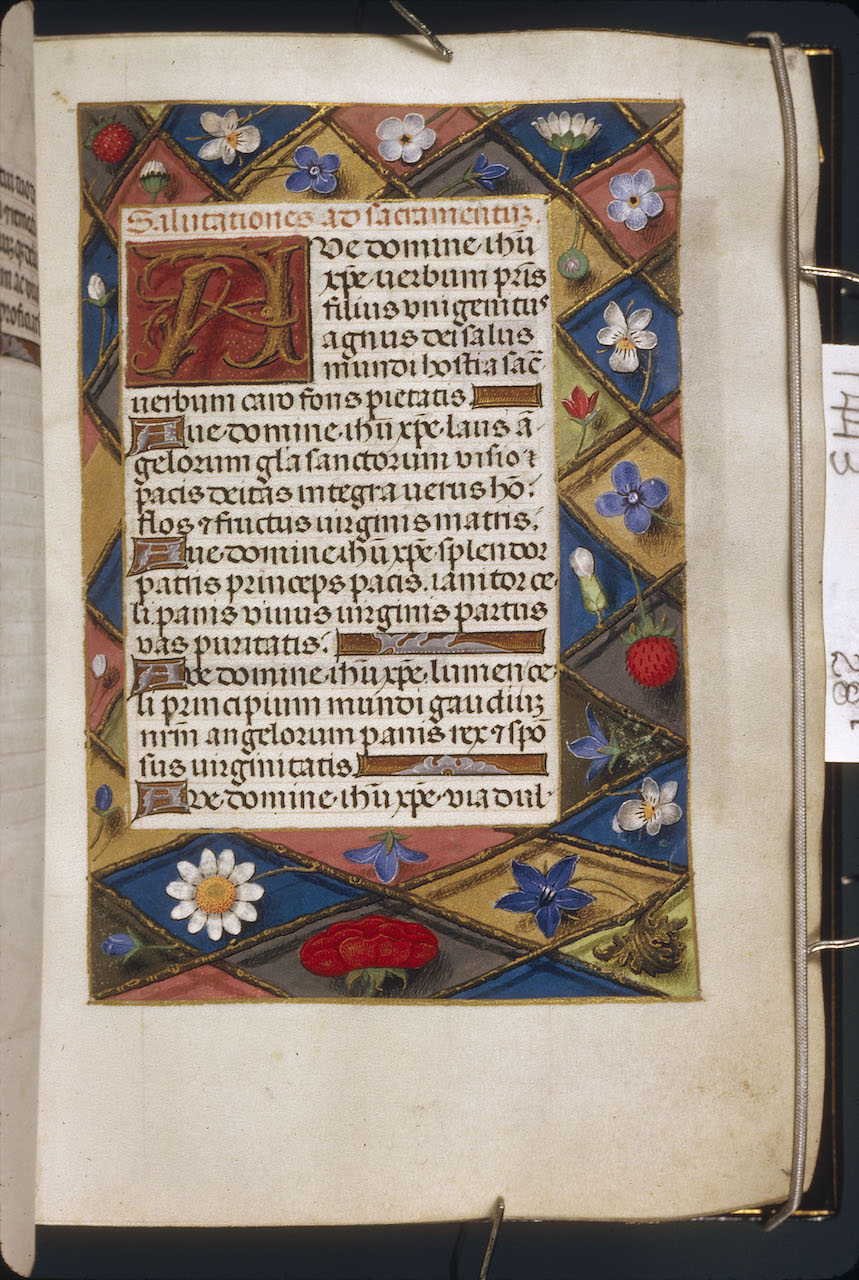 Salutationes ad sacramentuꝫ.
AVe domine ihū
xp̄e uerbum pr̄is
filius vnigenitus
agnus dei salus
mundi hostia sac̄
uerbum caro fons pietatis
Aue domine ihū xp̄e laus ā-
gelorum gl̄a sanctorum visio
pacis deitas integra uerus hō.
flos ⁊ fructus uirginis matris.
Aue domine ihū xp̄e splendor
patris princeps pacis. ianitor ce-
li panis viuus uirginis partus
vas puritatis.
Ave domine ihū xp̄e lumen ce-
li principium mundi gaudiuꝫ
nr̄m angelorum panis rex ⁊ spō
sus uirginitatis
Ave domine ihū xp̄e via dul-
1443
28